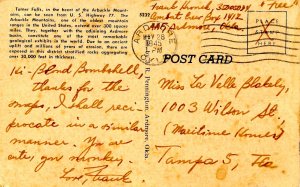 Turner Falls, in the heart of the Arbuckle Mountains, can be seen from U. S. Highway 77. The
Arbuckle Mountains, one of the oldest mountain
systems in the United States, cover 860 square
miles. They, together with the adjoining Arbuckle
basin, constitute one of the most remarkable
geological exhibits in the world. Due to an ancient
uplift and millions of years of erosion, there are
exposed in this district stratified rocks aggregating
over 30,000 feet in thickness.
Hi-Blond Bombshell,
thanks for the
maps, I shall reci-
procate in a similar
manner. You are
cute, you monkey.
Love Frank
E. Pennington, Ardmore, Okla.
ARDMORE
1945
PM
OKLA
Frank
Combat Crew Box 1412
Ardmore Okla
PLACE
STAMP
HERE
POST CARD
Miss La Velle Blakely,
1003 Wilson St.
(Maritime Homes)
Tampa 5, Fla